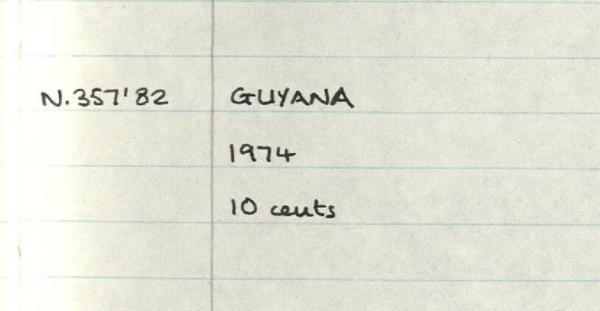 N.357'82 GUYANA
1974
10 cents